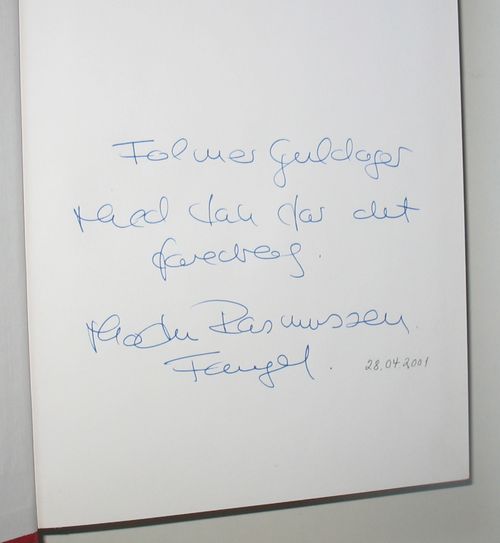 Folmer Guldager
Med tak for det
foredrag.
Rasmussen.
28.04.2001